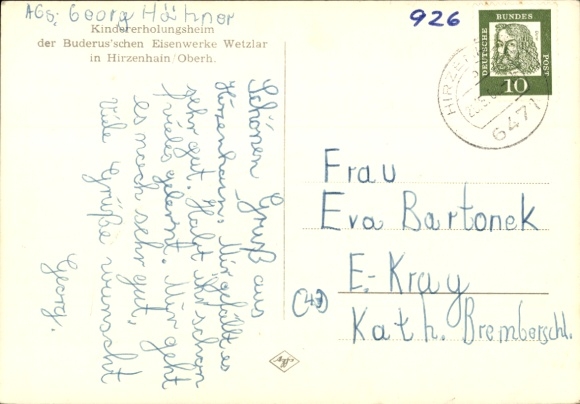 Abs. Georg Häfner
Kindererholungsheim
der Buderus'schen Eisenwerke Wetzlar
in Hirzenhain/Oberh.
Schönen Gruß aus
Hirzenhain. Mir gefällt es
sehr gut. Habt ihr schon
vieles gelernt. Mir geht
es noch sehr gut,
Viele Grüße wünscht
Georg.
926
DEUTSCHE BUNDES POST
10
HIRZEN
6471
Frau
Eva Bartonek
E.-Kray
(43)
Kath. Bremberschl.
Agfa